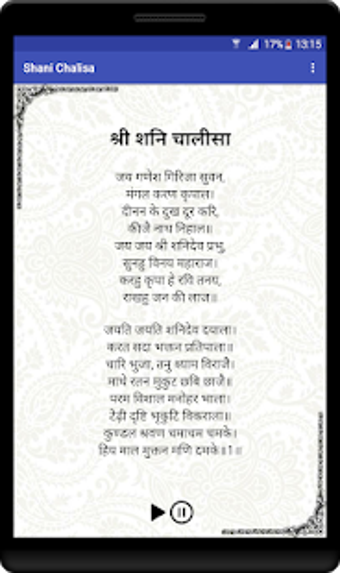 17% 13:15
Shani Chalisa
श्री शनि चालीसा
जय गणेश गिरिजा सुवन,
मंगल करण कृपाल।
दीनन के दुख दूर करि,
कीजै नाथ निहाल॥
जय जय श्री शनिदेव प्रभु,
सुनहु विनय महाराज।
करहु कृपा हे रवि तनय,
राखहु जन की लाज॥
जयति जयति शनिदेव दयाला।
करत सदा भक्तन प्रतिपाला॥
चारि भुजा, तनु श्याम विराजै।
माथे रतन मुकुट छबि छाजै॥
परम विशाल मनोहर भाला।
टेढ़ी दृष्टि भृकुटि विकराला॥
कुण्डल श्रवण चमाचम चमके।
हिय माल मुक्तन मणि दमके॥1॥